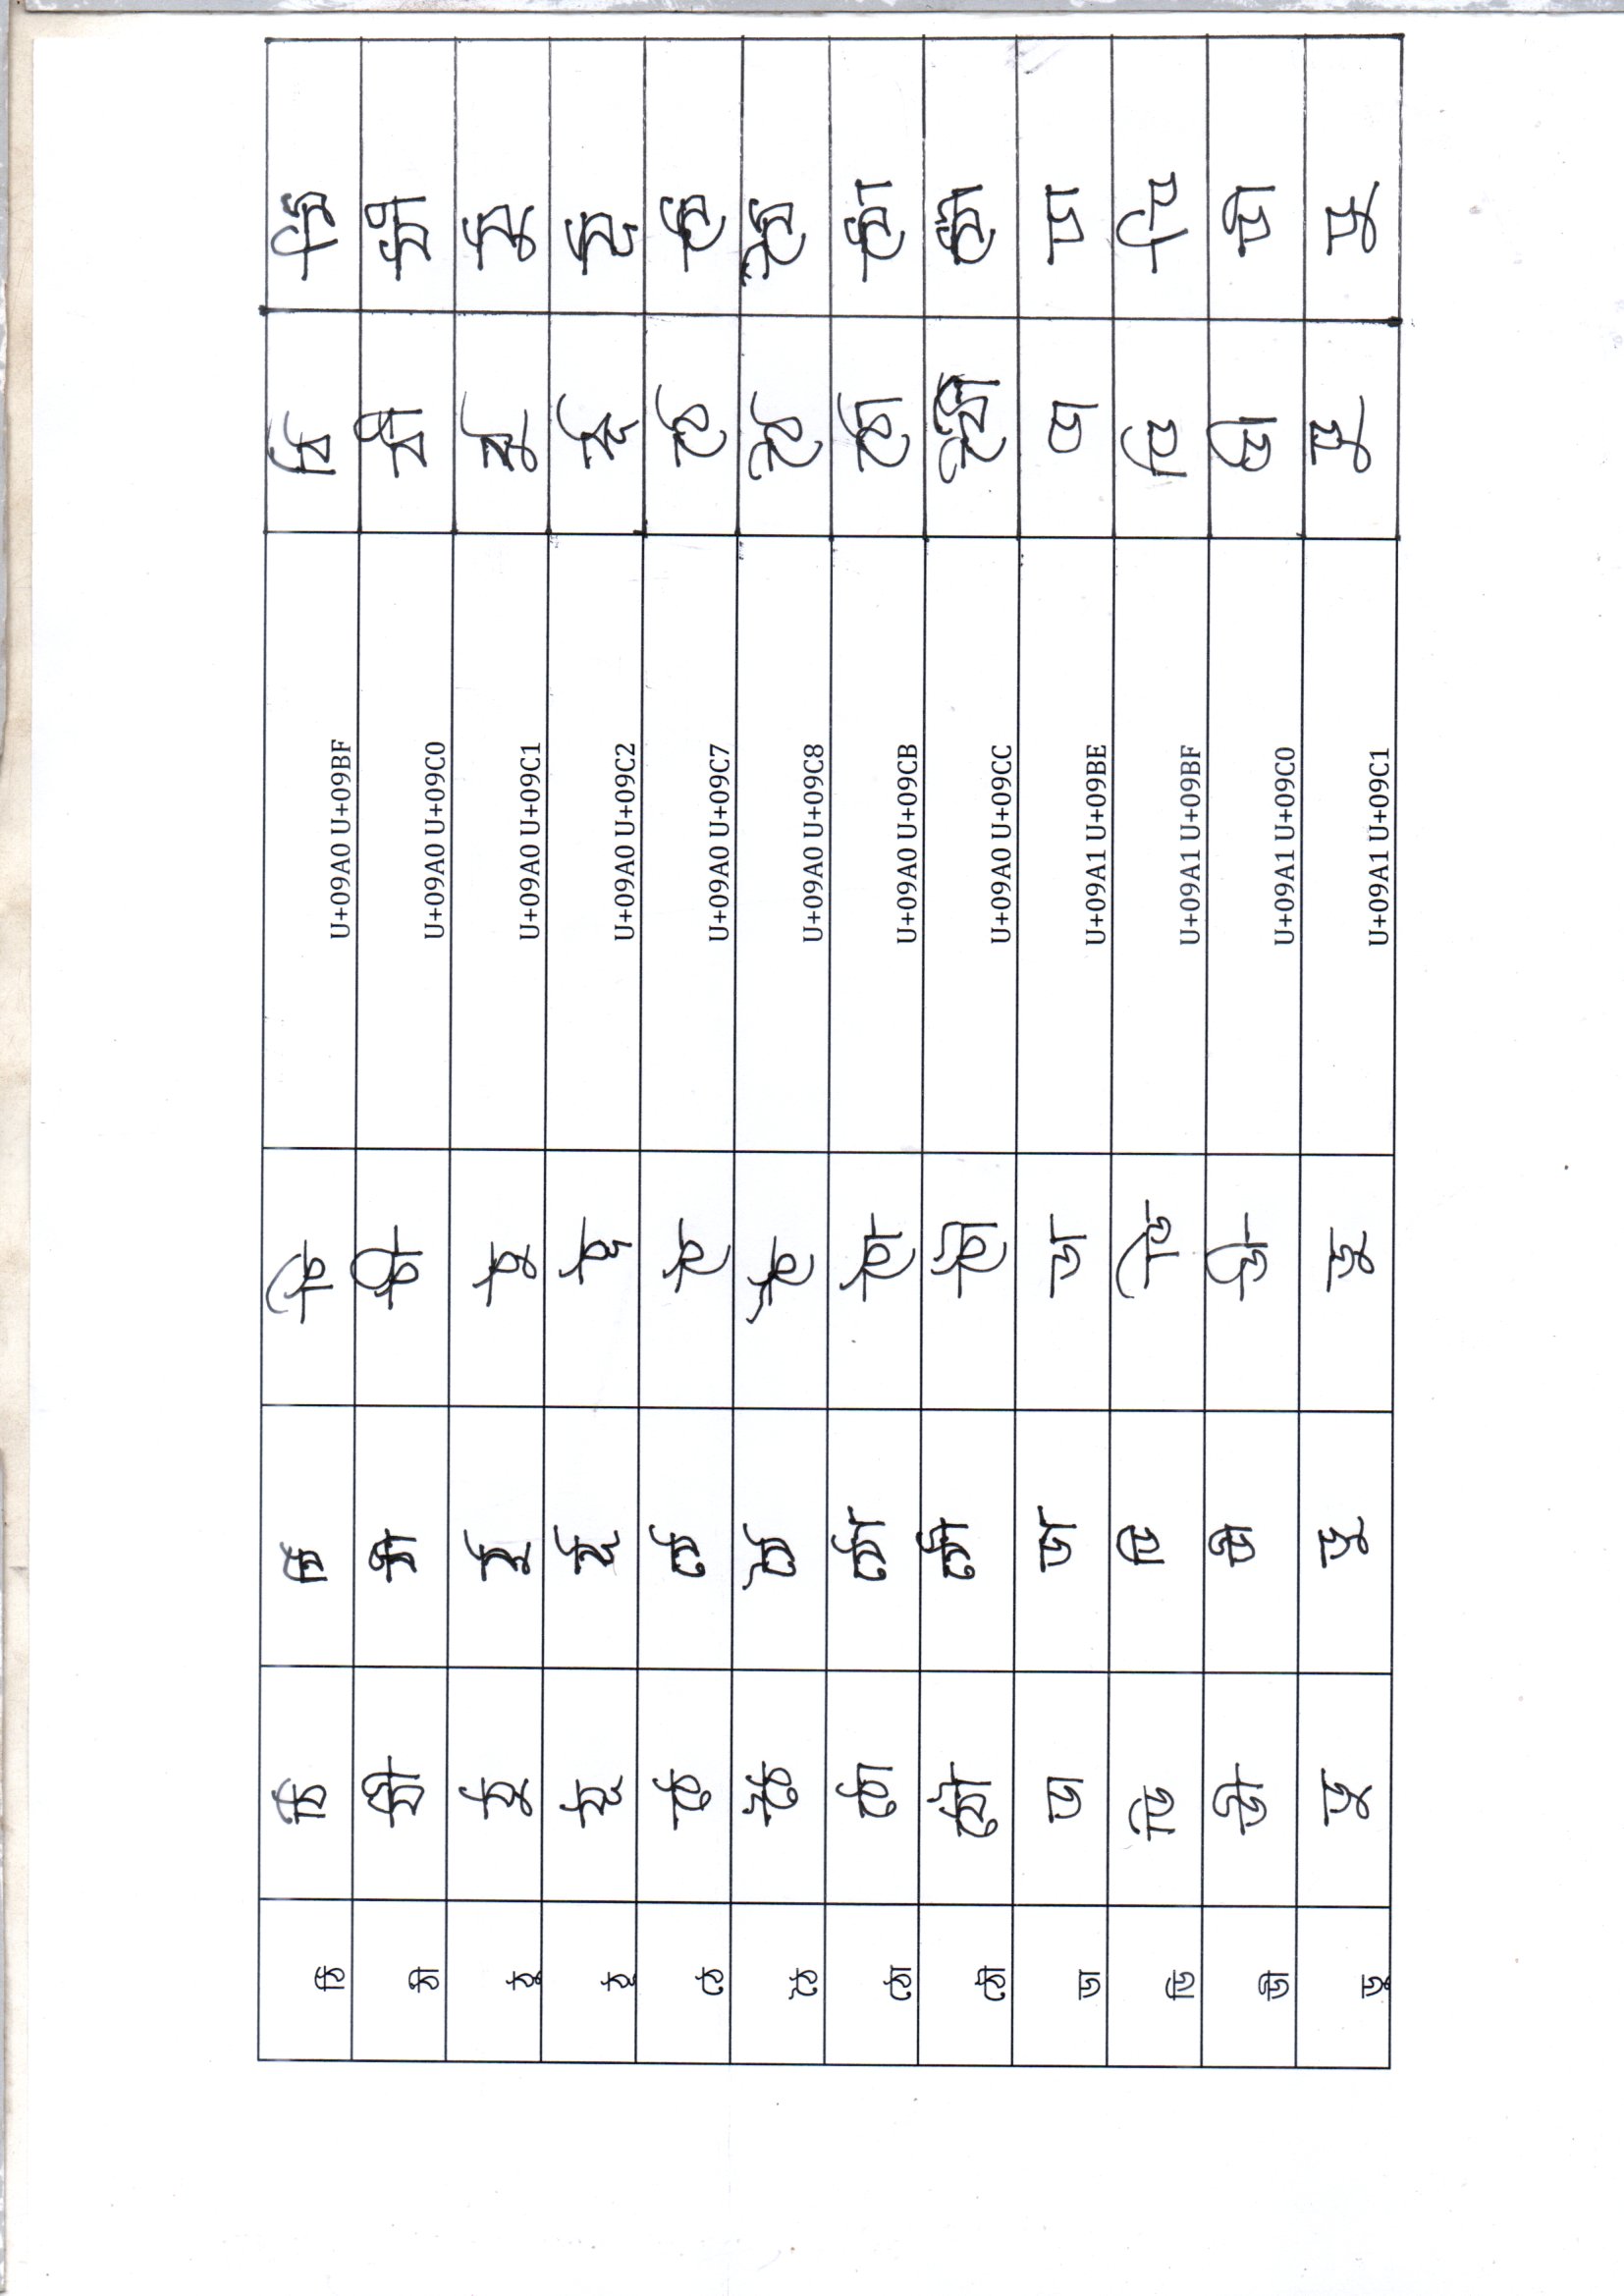 ঠি ঠি ঠি ঠি U+09A0 U+09BF ঠি ঠি
ঠী ঠী ঠী ঠী U+09A0 U+09C0 ঠী ঠী
ঠু ঠু ঠু ঠু U+09A0 U+09C1 ঠু ঠু
ঠূ ঠূ ঠূ ঠূ U+09A0 U+09C2 ঠূ ঠূ
ঠে ঠে ঠে ঠে U+09A0 U+09C7 ঠে ঠে
ঠৈ ঠৈ ঠৈ ঠৈ U+09A0 U+09C8 ঠৈ ঠৈ
ঠো ঠো ঠো ঠো U+09A0 U+09CB ঠো ঠো
ঠৌ ঠৌ ঠৌ ঠৌ U+09A0 U+09CC ঠৌ ঠৌ
ডা ডা ডা ডা U+09A1 U+09BE ডা ডা
ডি ডি ডি ডি U+09A1 U+09BF ডি ডি
ডী ডী ডী ডী U+09A1 U+09C0 ডী ডী
ডু ডু ডু ডু U+09A1 U+09C1 ডু ডু